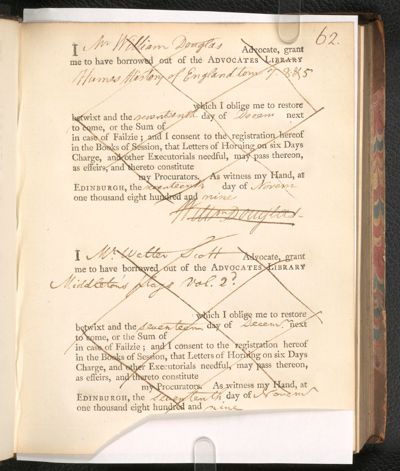 62.
I Mr William Douglas Advocate, grant
me to have borrowed out of the ADVOCATES LIBRARY
Humes History of England tom 7. 8 & 5
which I oblige me to restore
betwixt and the seventeenth day of Decem next
to come, or the Sum of
in case of Failzie; and I consent to the registration hereof
in the Books of Session, that Letters of Horning on six Days
Charge, and other Executorials needful, may pass thereon,
as effeirs, and thereto constitute
my Procurators. As witness my Hand, at
EDINBURGH, the seventeenth day of Novem
one thousand eight hundred and nine
Will: Douglas.
I Mr Walter Scott Advocate, grant
me to have borrowed out of the ADVOCATES LIBRARY
Middleton's plays Vol. 2d
which I oblige me to restore
betwixt and the seventeen day of Decem next
to come, or the Sum of
in case of Failzie; and I consent to the registration hereof
in the Books of Session, that Letters of Horning on six Days
Charge, and other Executorials needful, may pass thereon,
as effeirs, and thereto constitute
my Procurators. As witness my Hand, at
EDINBURGH, the seventeenth day of Novem
one thousand eight hundred and nine